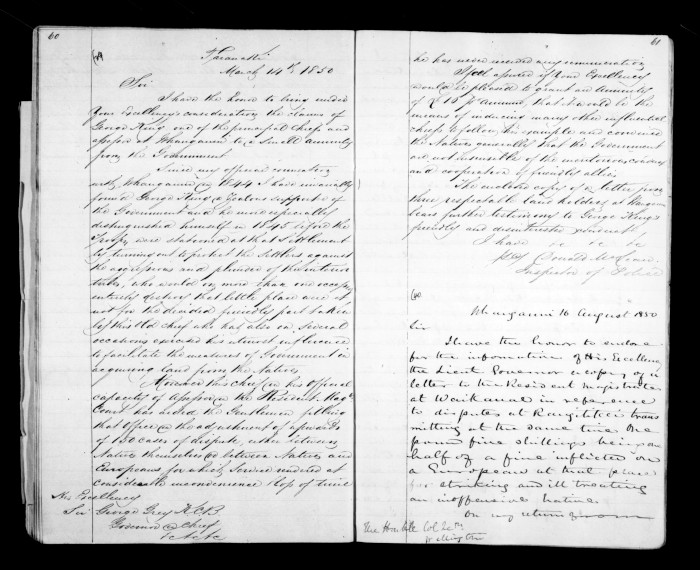 60
Taranaki
March 14th 1850
Sir
I have the honor to bring under
Your Excellency's consideration the claims of
George King, one of the principal Chiefs and
assessor at Whanganui to a small annuity
from the Government
Since my official connection
with Whanganui @ 1844 I have invariably
found George King a zealous supporter of
the Government and he more especially
distinguished himself in 1845 before the
Troops were stationed at that Settlement
by turning out to protect the Settlers against
the aggressions and plunder of the interior
tribes, who would on more than one occasion
entirely destroy that little place were it
not for the decided friendly part taken
by this old chief who has also on several
occasions exercised his utmost influence
to facilitate the measures of Government in
acquiring land from the Natives
Moreover this chief in his official
capacity of Assessor in the Resident Magte
Court has aided the Gentlemen filling
that Office @ the adjustment of upwards
of 130 cases of dispute, either between
Natives themselves @ between Natives and
Europeans for which service rendered at
considerable inconvenience & loss of time
His Excellency
Sir George Grey KCB
Governor @ Chief
&c &c &c
61
he has never received any remuneration
I feel assured if Your Excellency
would be pleased to grant an annuity
of £15 pr annum that it would be the
means of inducing many other influential
chiefs to follow his example and convince
the Natives generally that the Government
are not insensible of the meritorious services
and cooperation of friendly allies
The enclosed copy of a letter from
three respectable land holders at Wanganui
bears further testimony to George King's
friendly and disinterested conduct
I have &c &c &c
Donald McLean
Inspector of Police
Whanganui 16 August 1850
Sir
I have the honor to enclose
for the information of His Excellency
the Lieut Governor a copy of a
letter to the Resident Magistrate
at Waikanae in reference
to disputes at Rangitikei trans
mitting at the same time One
pound five shillings being one
half of a fine inflicted on
a European at that place
for striking and ill treating
an inoffensive native
On my return from
The Honble Col Secy
Wellington